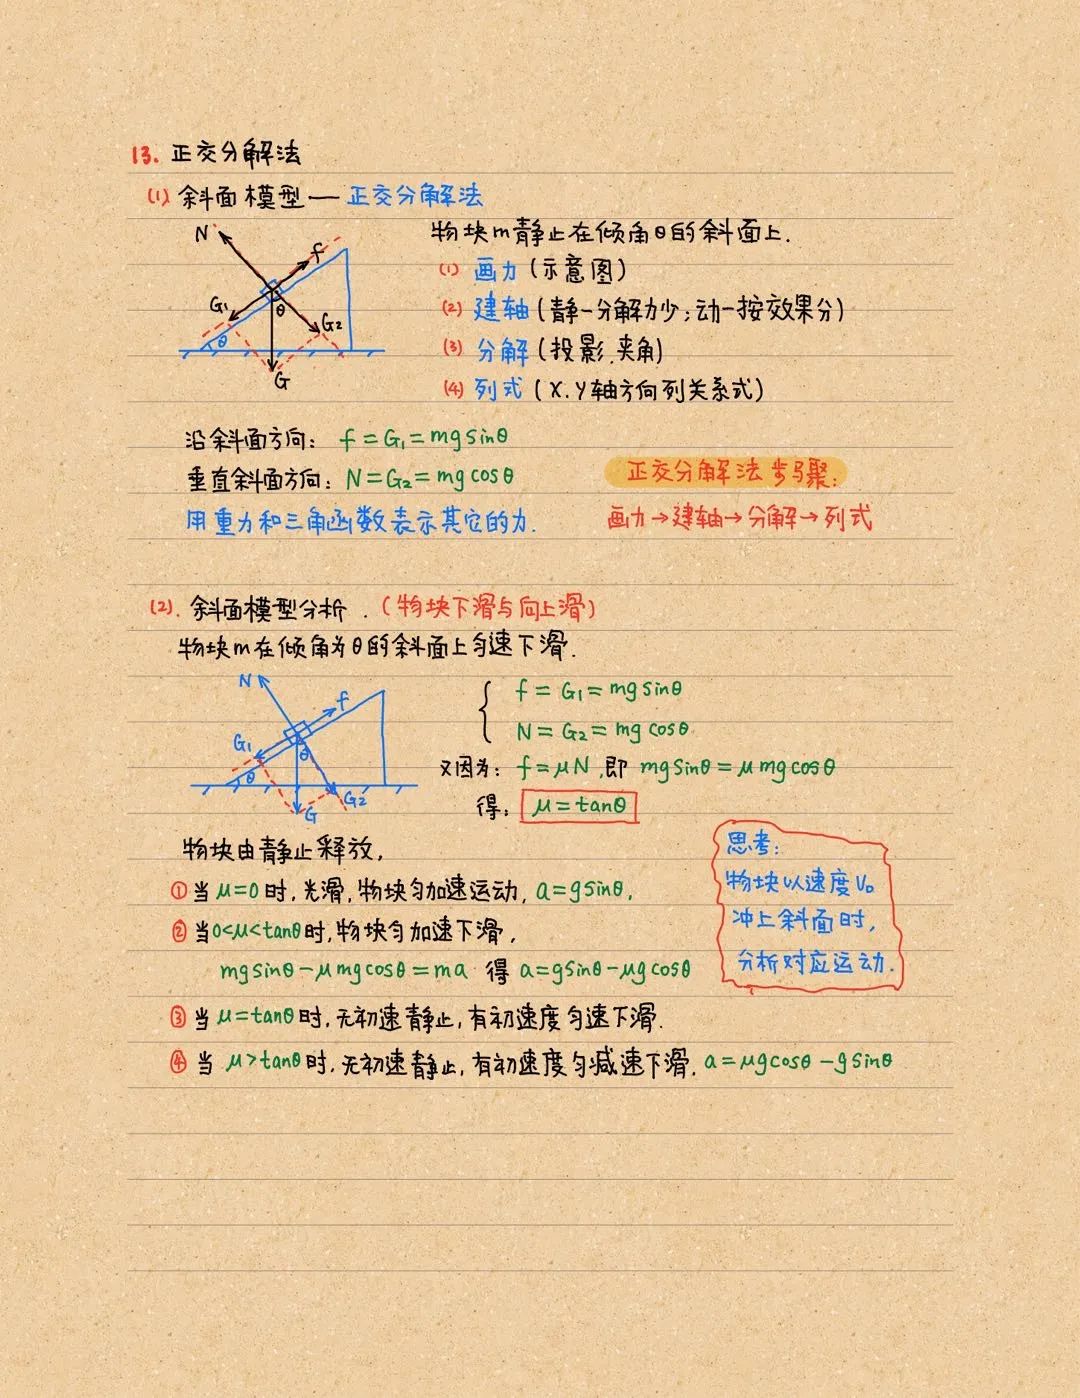 13. 正交分解法
(1) 斜面模型 — 正交分解法
N
f
G₁
θ
G₂
θ
G
物块m静止在倾角θ的斜面上.
(1) 画力 (示意图)
(2) 建轴 (静一分解力少;动一按效果分)
(3) 分解 (投影.夹角)
(4) 列式 (X.Y轴方向列关系式)
沿斜面方向: f=G₁=mgsinθ
垂直斜面方向: N=G₂=mgcosθ
用重力和三角函数表示其它的力.
正交分解法步骤:
画力→建轴→分解→列式
(2). 斜面模型分析. (物块下滑与向上滑)
物块m在倾角为θ的斜面上匀速下滑.
N
f
G₁
θ
θ
G₂
G
f=G₁=mgsinθ
N=G₂=mgcosθ
又因为: f=μN,即 mgsinθ=μmgcosθ
得: μ=tanθ
物块由静止释放,
①当μ=0时,光滑,物块匀加速运动, a=gsinθ,
②当0<μ<tanθ时,物块匀加速下滑,
mgsinθ-μmgcosθ=ma 得 a=gsinθ-μgcosθ
③当μ=tanθ时,无初速静止,有初速度匀速下滑.
④当μ>tanθ时,无初速静止,有初速度匀减速下滑. a=μgcosθ-gsinθ
思考:
物块以速度V₀
冲上斜面时,
分析对应运动.